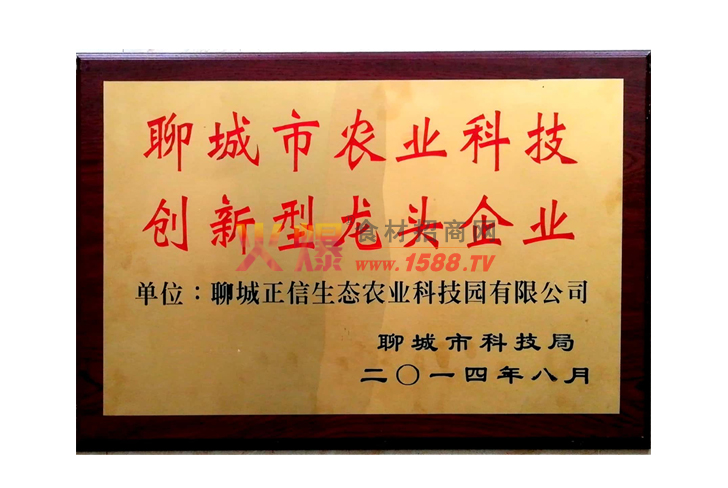 聊城市农业科技
创新型龙头企业
火爆食材招商网
www.1588.TV
单位：聊城正信生态农业科技园有限公司
聊城市科技局
二〇一四年八月